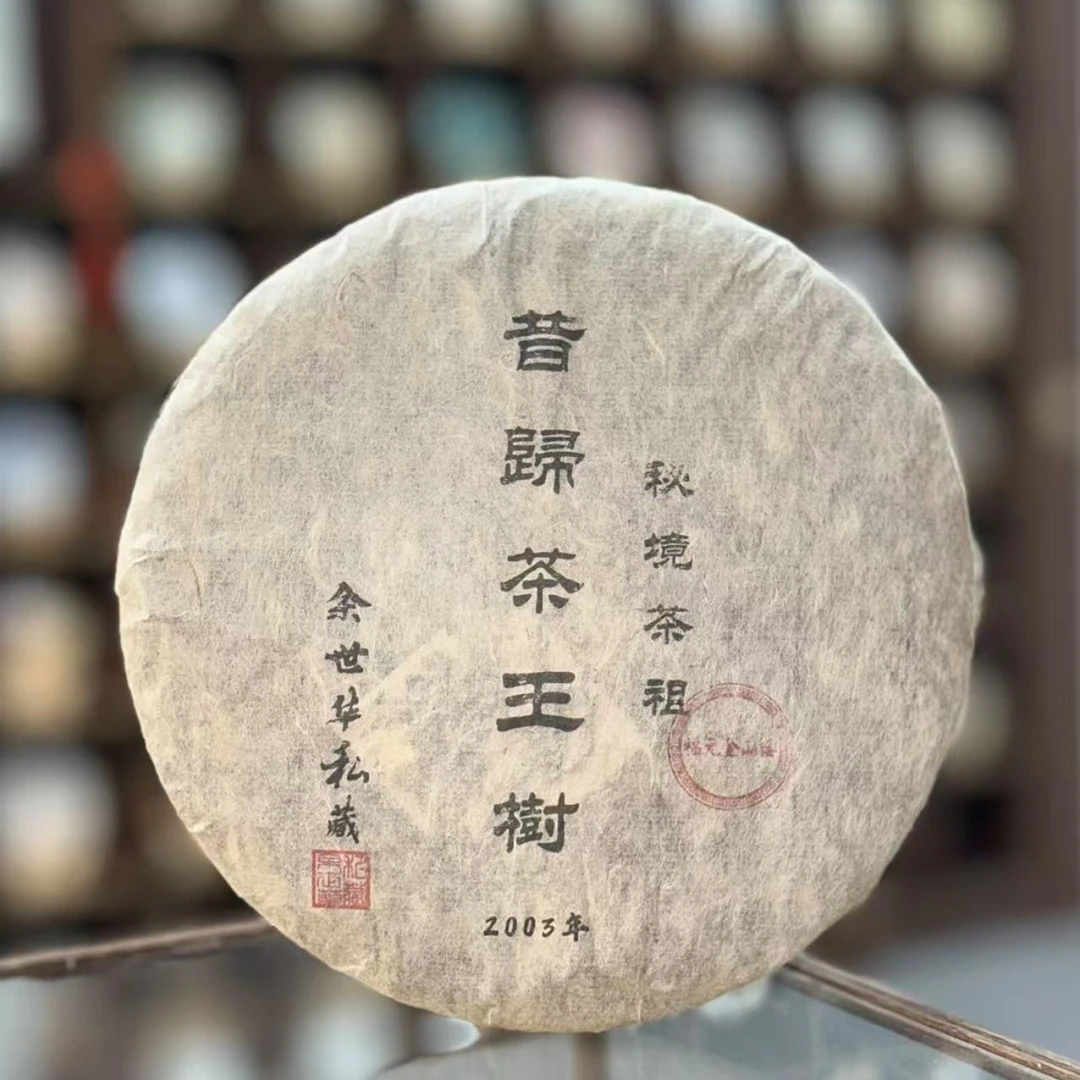 秘境茶祖
昔歸茶王樹
2003年
余世华私藏